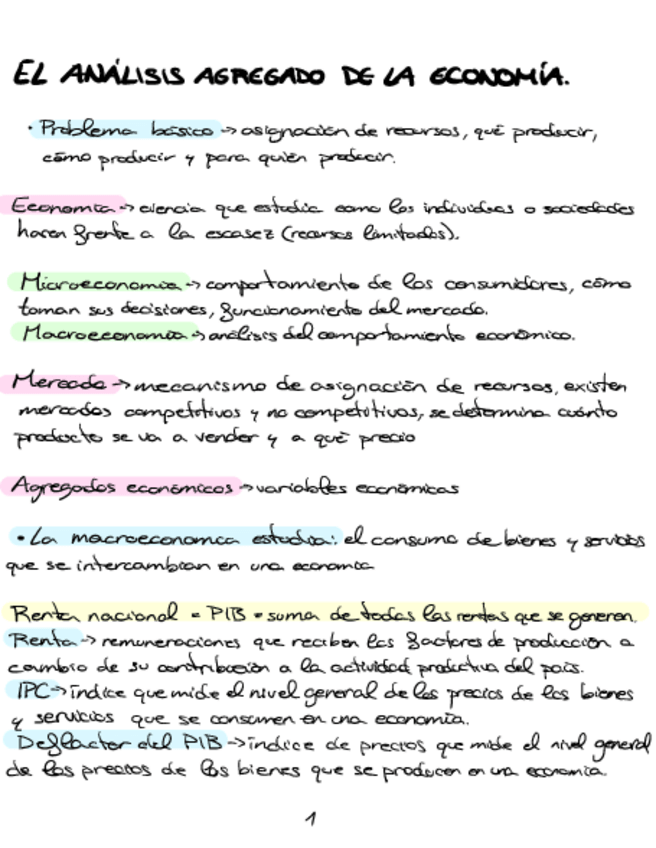 EL ANÁLISIS AGREGADO DE LA ECONOMÍA.
· Problema básico -> asignación de recursos, qué producir,
cómo producir y para quién producir.
Economía -> ciencia que estudia como los individuos o sociedades
hacen frente a la escasez (recursos limitados).
Microeconomía -> comportamiento de los consumidores, cómo
toman sus decisiones, funcionamiento del mercado.
Macroeconomía -> análisis del comportamiento económico.
Mercado -> mecanismo de asignación de recursos, existen
mercados competitivos y no competitivos, se determina cuánto
producto se va a vender y a qué precio
Agregados económicos -> variables económicas
· La macroeconomca estudia: el consumo de bienes y servicios
que se intercambian en una economía
Renta nacional = PIB = suma de todas las rentas que se generen.
Renta -> remuneraciones que reciben los factores de producción a
cambio de su contribución a la actividad productiva del país.
IPC -> índice que mide el nivel general de los precios de los bienes
y servicios que se consumen en una economía.
Deflactor del PIB -> índice de precios que mide el nivel general
de los precios de los bienes que se producen en una economía.
1